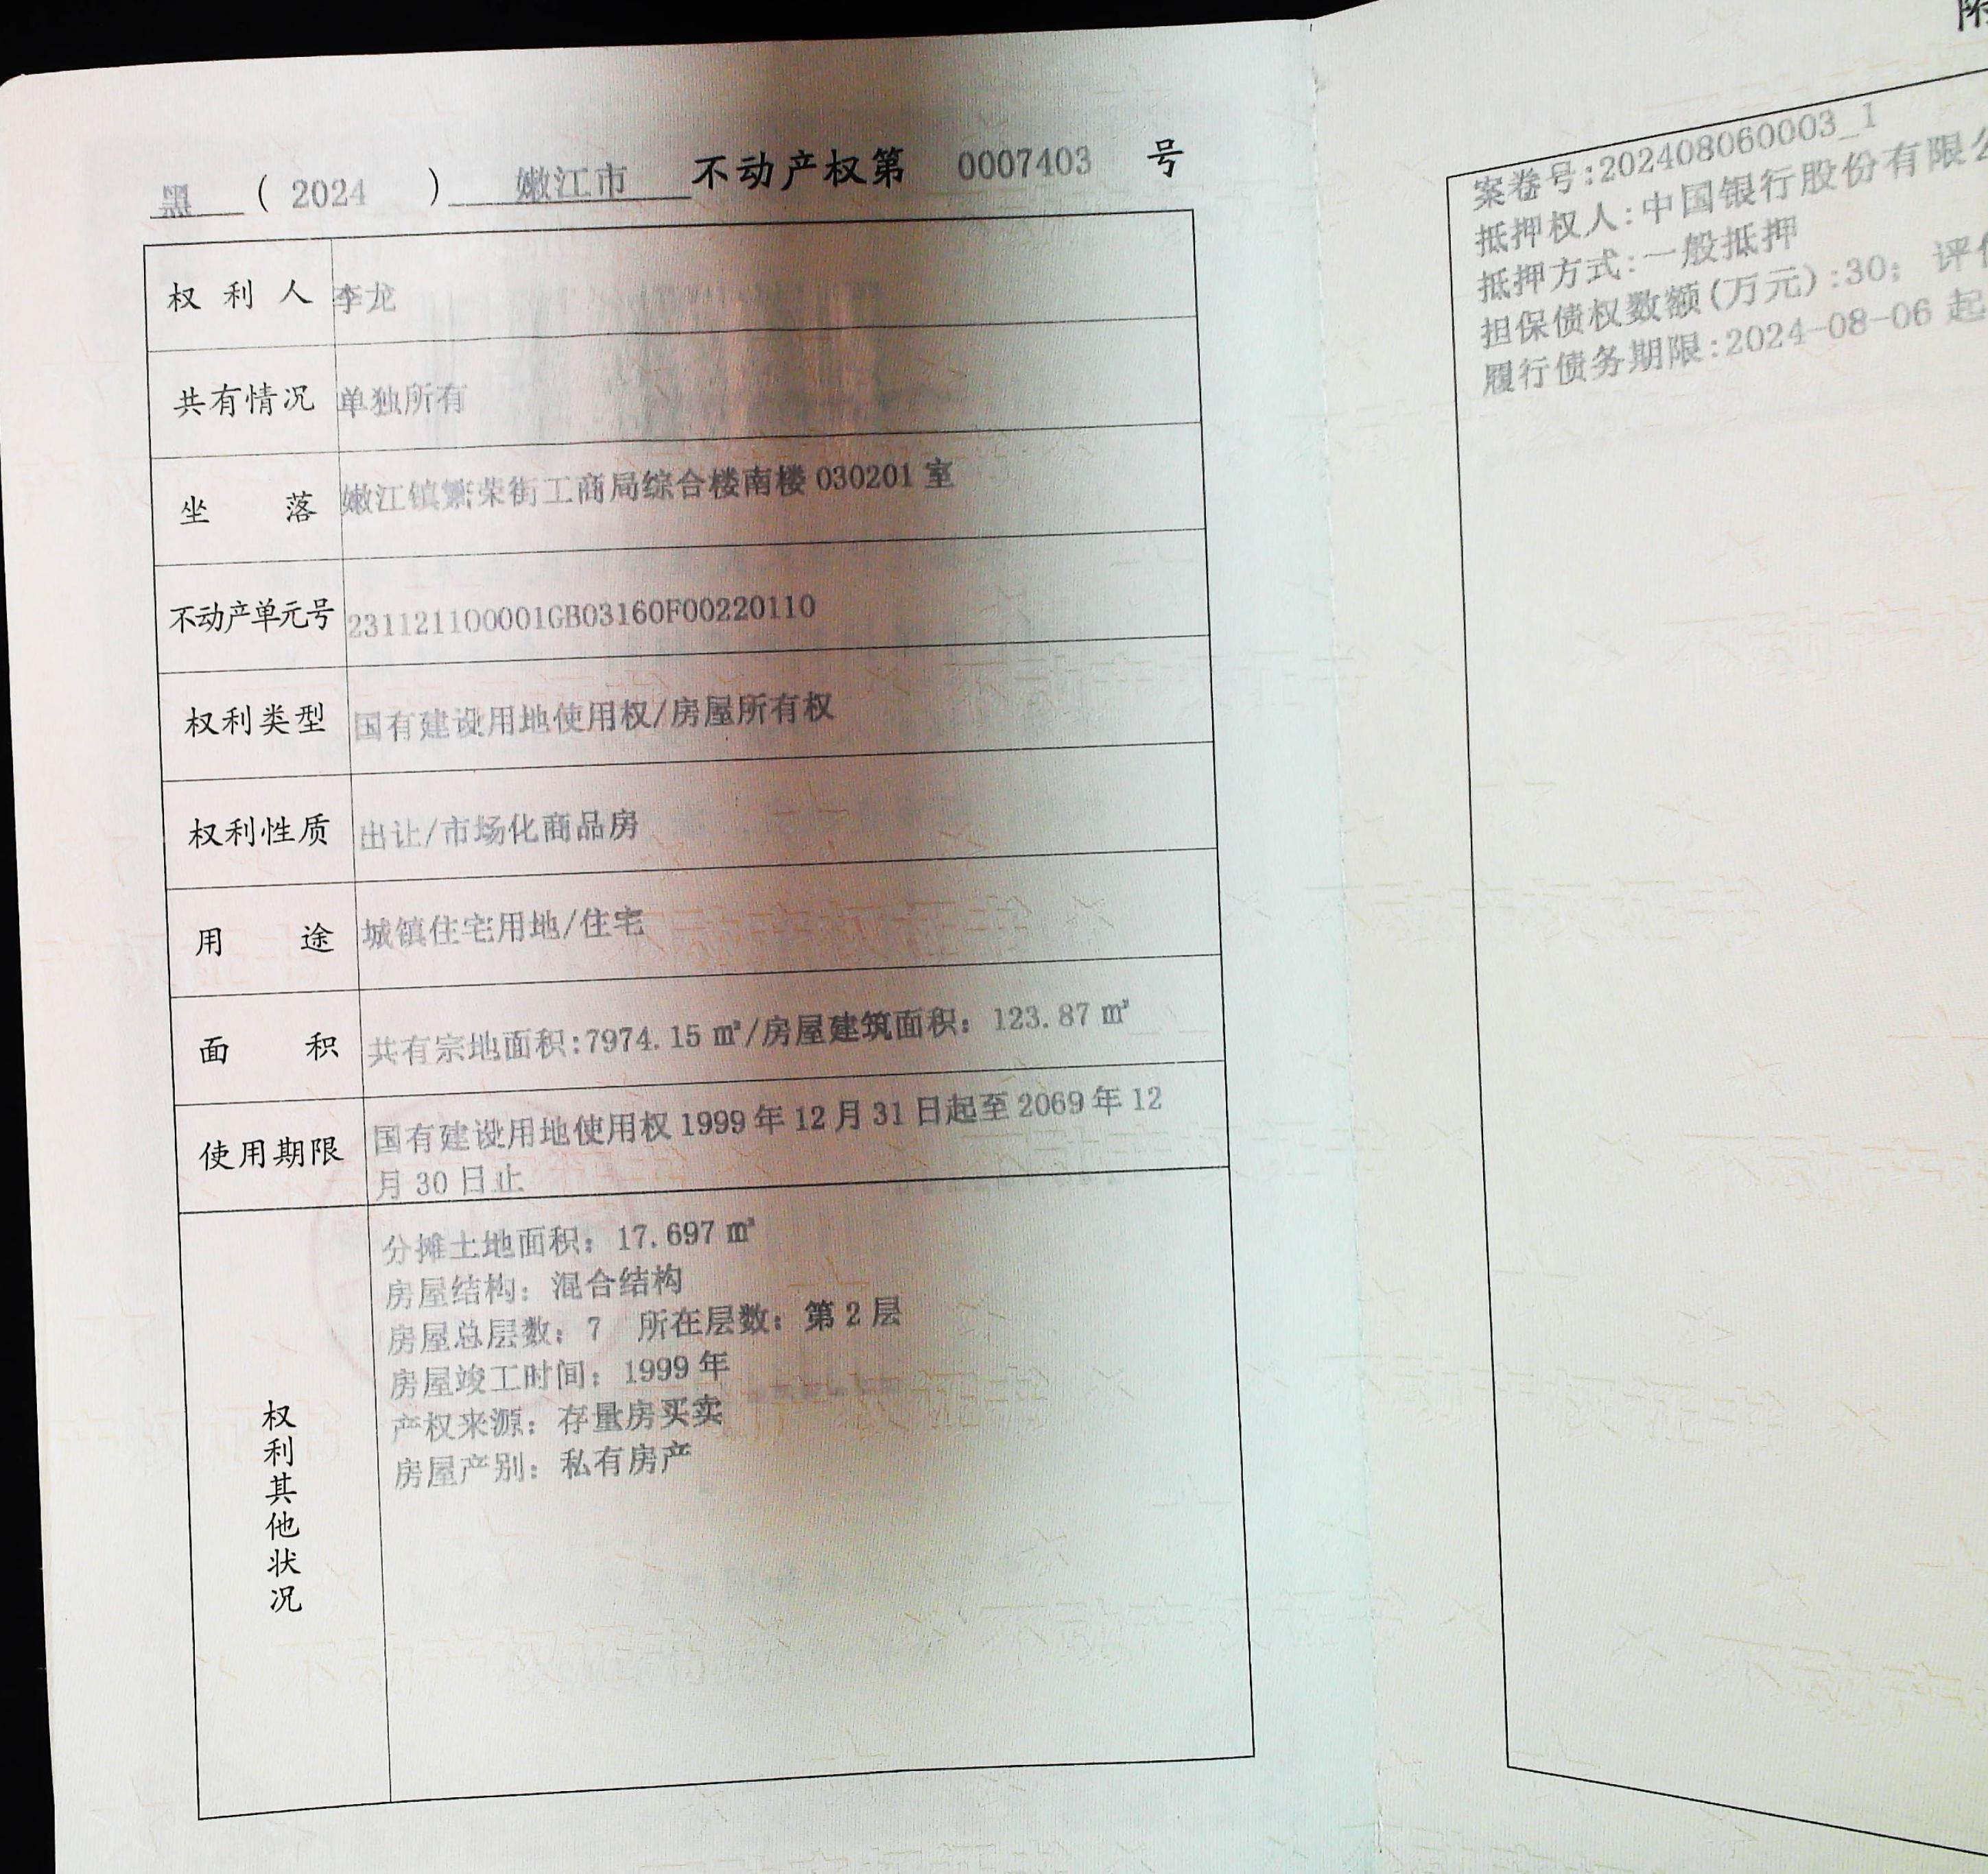 黑 ( 2024 ) 嫩江市 不动产权第 0007403 号
权利人 李龙
共有情况 单独所有
坐落 嫩江镇繁荣街工商局综合楼南楼 030201 室
不动产单元号 231121100001GB03160F00220110
权利类型 国有建设用地使用权/房屋所有权
权利性质 出让/市场化商品房
用途 城镇住宅用地/住宅
面积 共有宗地面积:7974.15 ㎡/房屋建筑面积：123.87 ㎡
使用期限 国有建设用地使用权 1999 年 12 月 31 日起至 2069 年 12
月 30 日止
权利其他状况
分摊土地面积：17.697 ㎡
房屋结构：混合结构
房屋总层数：7 所在层数：第 2 层
房屋竣工时间：1999 年
产权来源：存量房买卖
房屋产别：私有房产
附
案卷号:202408060003_1
抵押权人:中国银行股份有限公
抵押方式:一般抵押
担保债权数额(万元):30; 评估
履行债务期限:2024-08-06 起